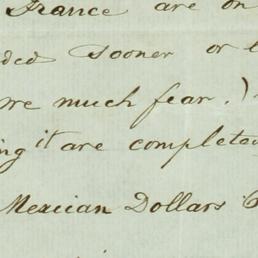 France are on
ded sooner or
we much fear.)
ing it are complete
Mexican Dollars